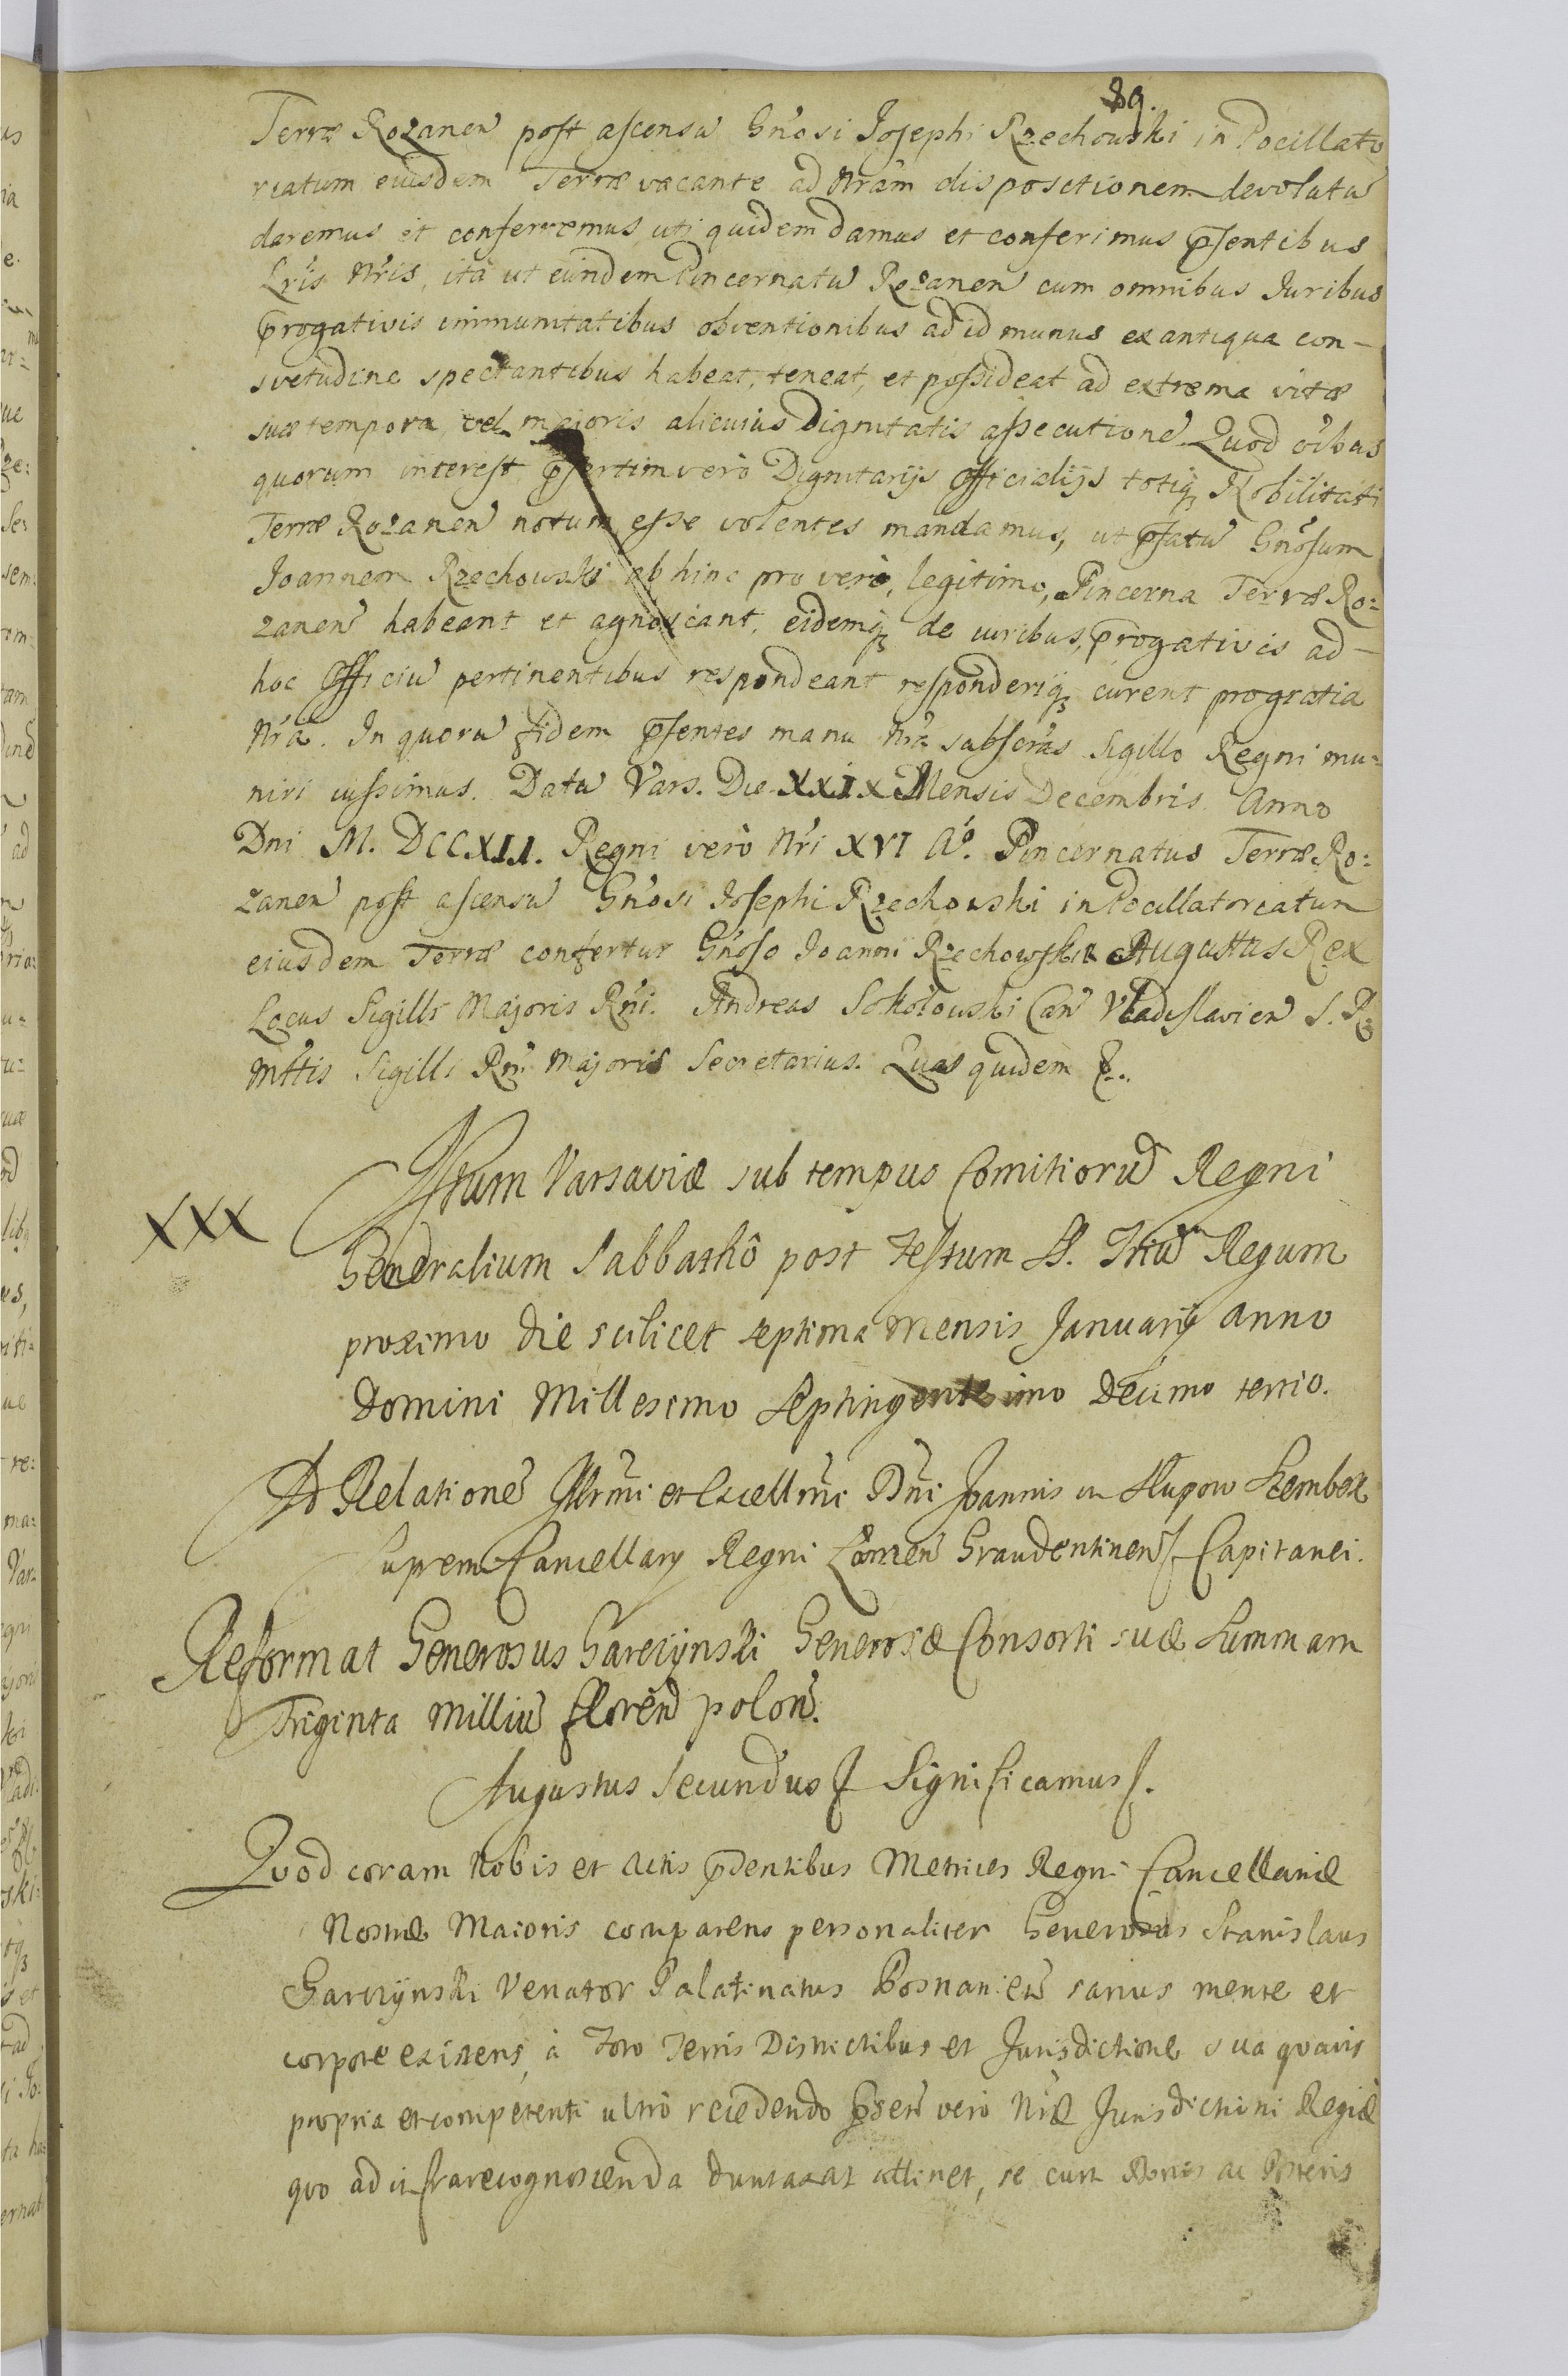 89.
Terræ Rozanen post ascensũ Gñosi Josephi Rzechowski in Pocillato
riatum eiusdem Terræ vacante ad Nrãm dispositionem devolutũ
daremus et conferremus uti quidem damus et conferimus p̃sentibus
Lr̃is Nr̃is, ita ut eundem Pincernatũ Rozanen cum omnibus Juribus
p̃rogativis immunitatibus obventionibus ad id munus ex antiqua con-
svetudine spectantibus habeat, teneat, et possideat ad extrema vitæ
suæ tempora, vel majoris alicuius Dignitatis assecutionẽ. Quod oĩbus
quorum interest p̃sertim verò Dignitarijs Officialijs totiq₃ Nobilitati
Terræ Rozanen notum esse volentes mandamus, ut p̃fatũ Gnõsum
Joannem Rzechowski abhinc pro vero, legitimo, Pincerna Terræ Ro:
zanen habeant et agnoscant, eidemq₃ de iuribus, p̃rogativis ad-
hoc Officiũ pertinentibus respondeant responderiq₃ curent pro gratia
Nrã. In quorũ fidem p̃sentes manu Nrã subscr̃as Sigillo Regni mu:
niri iussimus. Datũ Vars. Die XXIX Mensis Decembris Anno
Dni M. DCCXII. Regni verò Nr̃i XVI Aº. Pincernatus Terræ Ro:
zanen post ascensũ Gñosi Josephi Rzechowski in Pocillatoriatum
eiusdem Terræ confertur Gñoso Joanni Rzechowski Augustus Rex
Locus Sigilli Majoris Rñi. Andreas Sokołowski Can Vladislavien S. R.
Mttis Sigilli Rñi Majoris Secretarius. Quas quidem &.
XXX
Actum Varsaviæ sub tempus Comitiorũ Regni
Generalium Sabbathô post Festum SS. Triũ Regum
proximo die scilicet septima Mensis Januarij Anno
Domini Millesimo Septingentesimo Decimo tertio.
Ad Relationẽ Illrm̃i et Excellm̃i Dñi Joannis in Słupow Szembek
Supremi Cancellarij Regni Łomzen Graudentinen &. Capitanei.
Reformat Generosus Garczÿnski Generosæ Consorti suæ Summam
Triginta Milliũ floren polon.
Augustus Secundus & Significamus &.
Quod coram Nobis et Actis p̃dentibus Metrices Regni Cancellariæ
Nostræ Maioris comparens personaliter Generosus Stanislaus
Garczÿnski Venator Palatinatus Posnanien sanus mente et
corpore existens, à Foro Terris Districtibus et Jurisdictione sua quavis
propria et competenti ultrò recedendo p̃sen verò Nr̃æ Jurisdictioni Regiæ
quo ad infrarecognoscenda duntaxat attinet, se cum Bonis ac Posteris